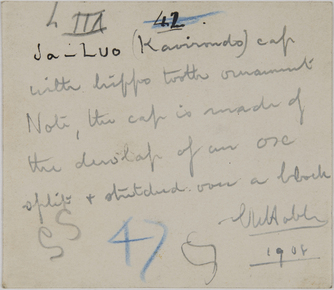 L III 42.
Ja-Luo (Kavirondo) cap
with hippo tooth ornament
Note, the cap is made of
the dewlap of an ox
split & stretched over a block
CWHobley
1908
47